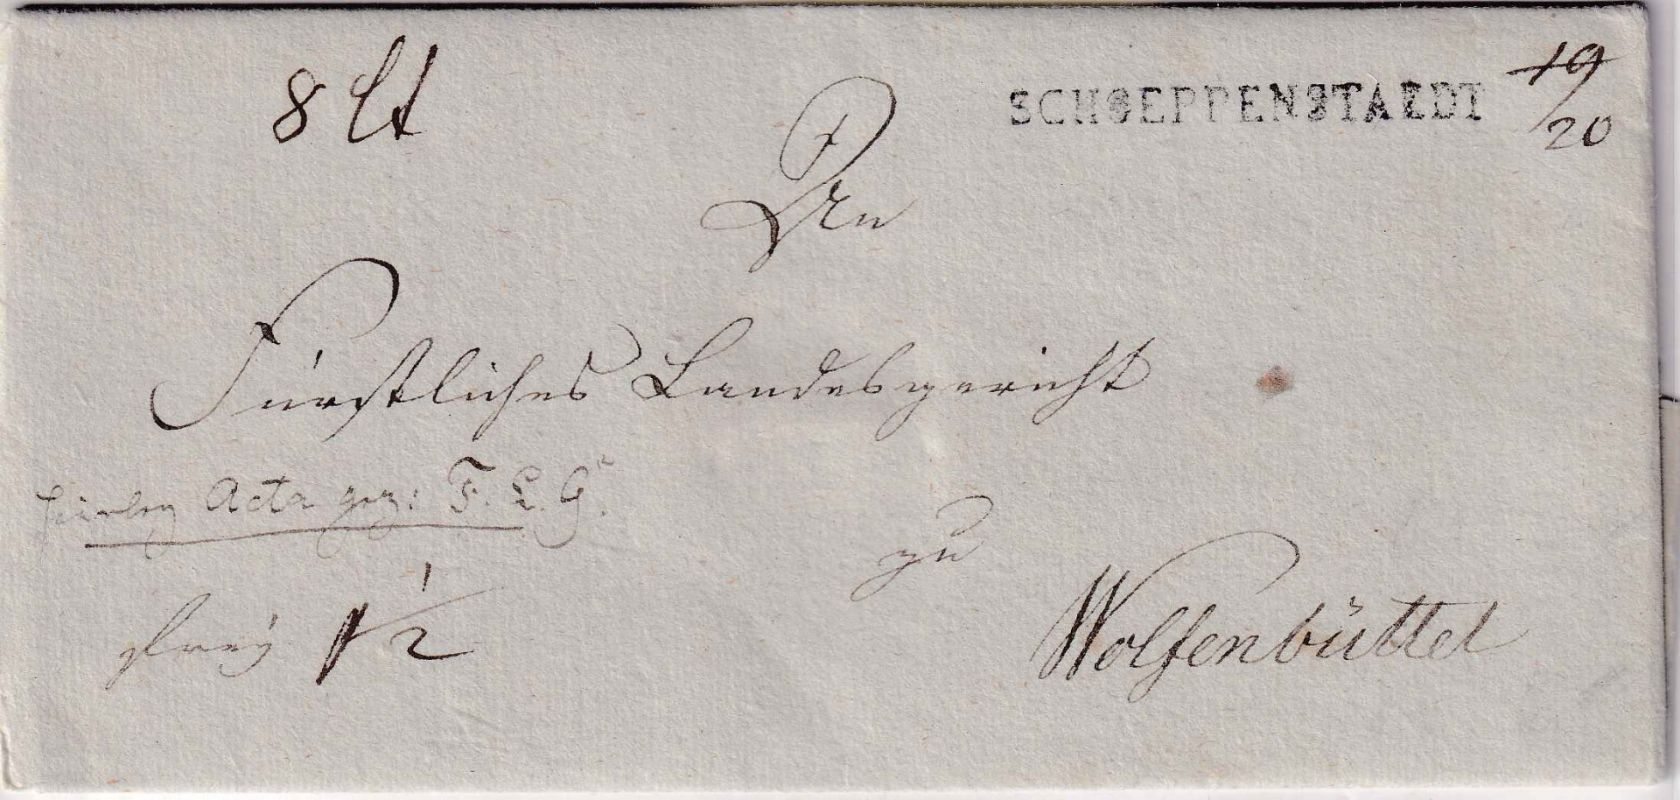 8 Lt
SCHOEPPENSTAEDT 19/20
An
Fürstliches Landesgericht
Acta gez: F. L. G.
zu
frey 1 1/2
Wolfenbüttel